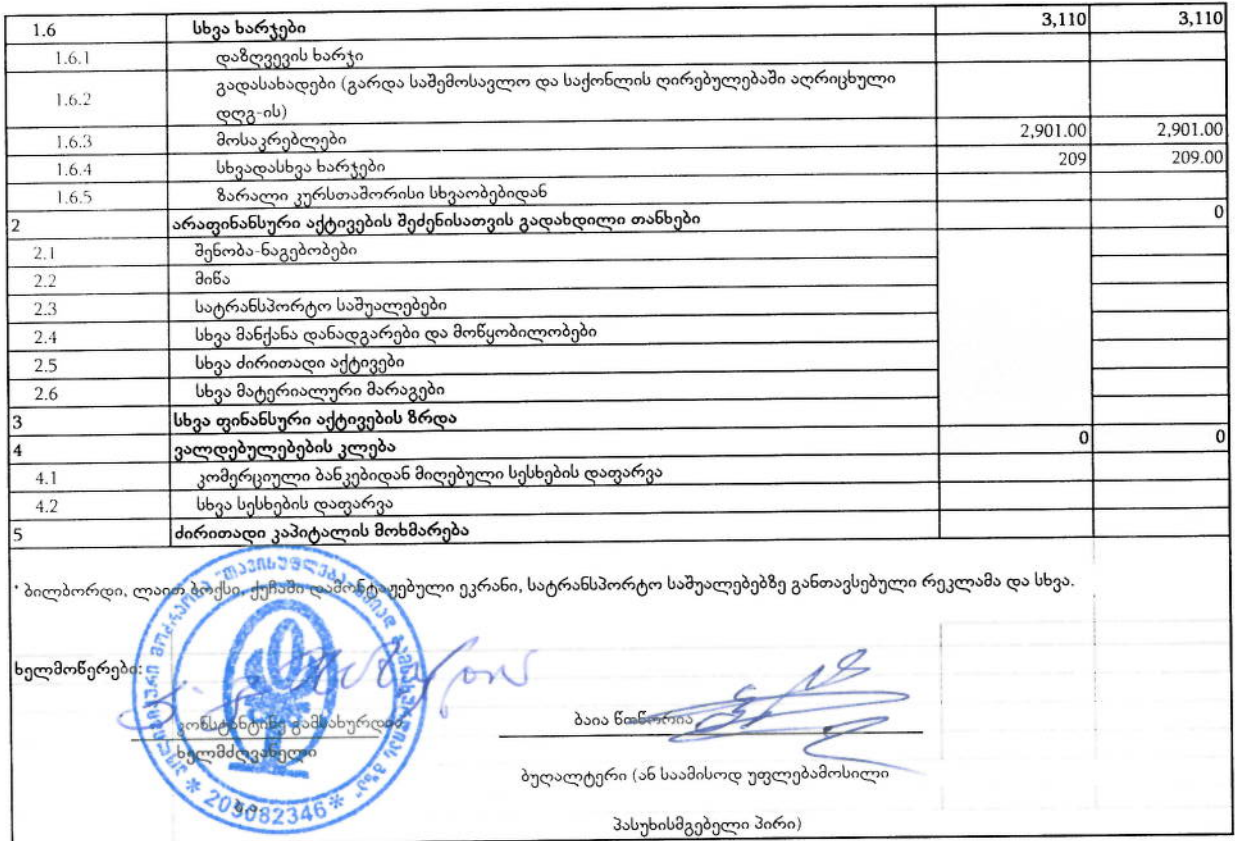 1.6 სხვა ხარჯები 3,110 3,110
1.6.1 დაზღვევის ხარჯი
1.6.2 გადასახადები (გარდა საშემოსავლო და საქონლის ღირებულებაში აღრიცხული
დღგ-ის)
1.6.3 მოსაკრებლები 2,901.00 2,901.00
1.6.4 სხვადასხვა ხარჯები 209 209.00
1.6.5 ზარალი კურსთაშორისი სხვაობებიდან
2 არაფინანსური აქტივების შეძენისათვის გადახდილი თანხები 0
2.1 შენობა-ნაგებობები
2.2 მიწა
2.3 სატრანსპორტო საშუალებები
2.4 სხვა მანქანა დანადგარები და მოწყობილობები
2.5 სხვა ძირითადი აქტივები
2.6 სხვა მატერიალური მარაგები
3 სხვა ფინანსური აქტივების ზრდა
4 ვალდებულებების კლება 0 0
4.1 კომერციული ბანკებიდან მიღებული სესხების დაფარვა
4.2 სხვა სესხების დაფარვა
5 ძირითადი კაპიტალის მოხმარება
* ბილბორდი, ლაით ბოქსი, ქუჩაში დამონტაჟებული ეკრანი, სატრანსპორტო საშუალებებზე განთავსებული რეკლამა და სხვა.
ხელმოწერები:
კონსტანტინე გამსახურდია ბაია წოწორია
ხელმძღვანელი
ბუღალტერი (ან საამისოდ უფლებამოსილი
პასუხისმგებელი პირი)